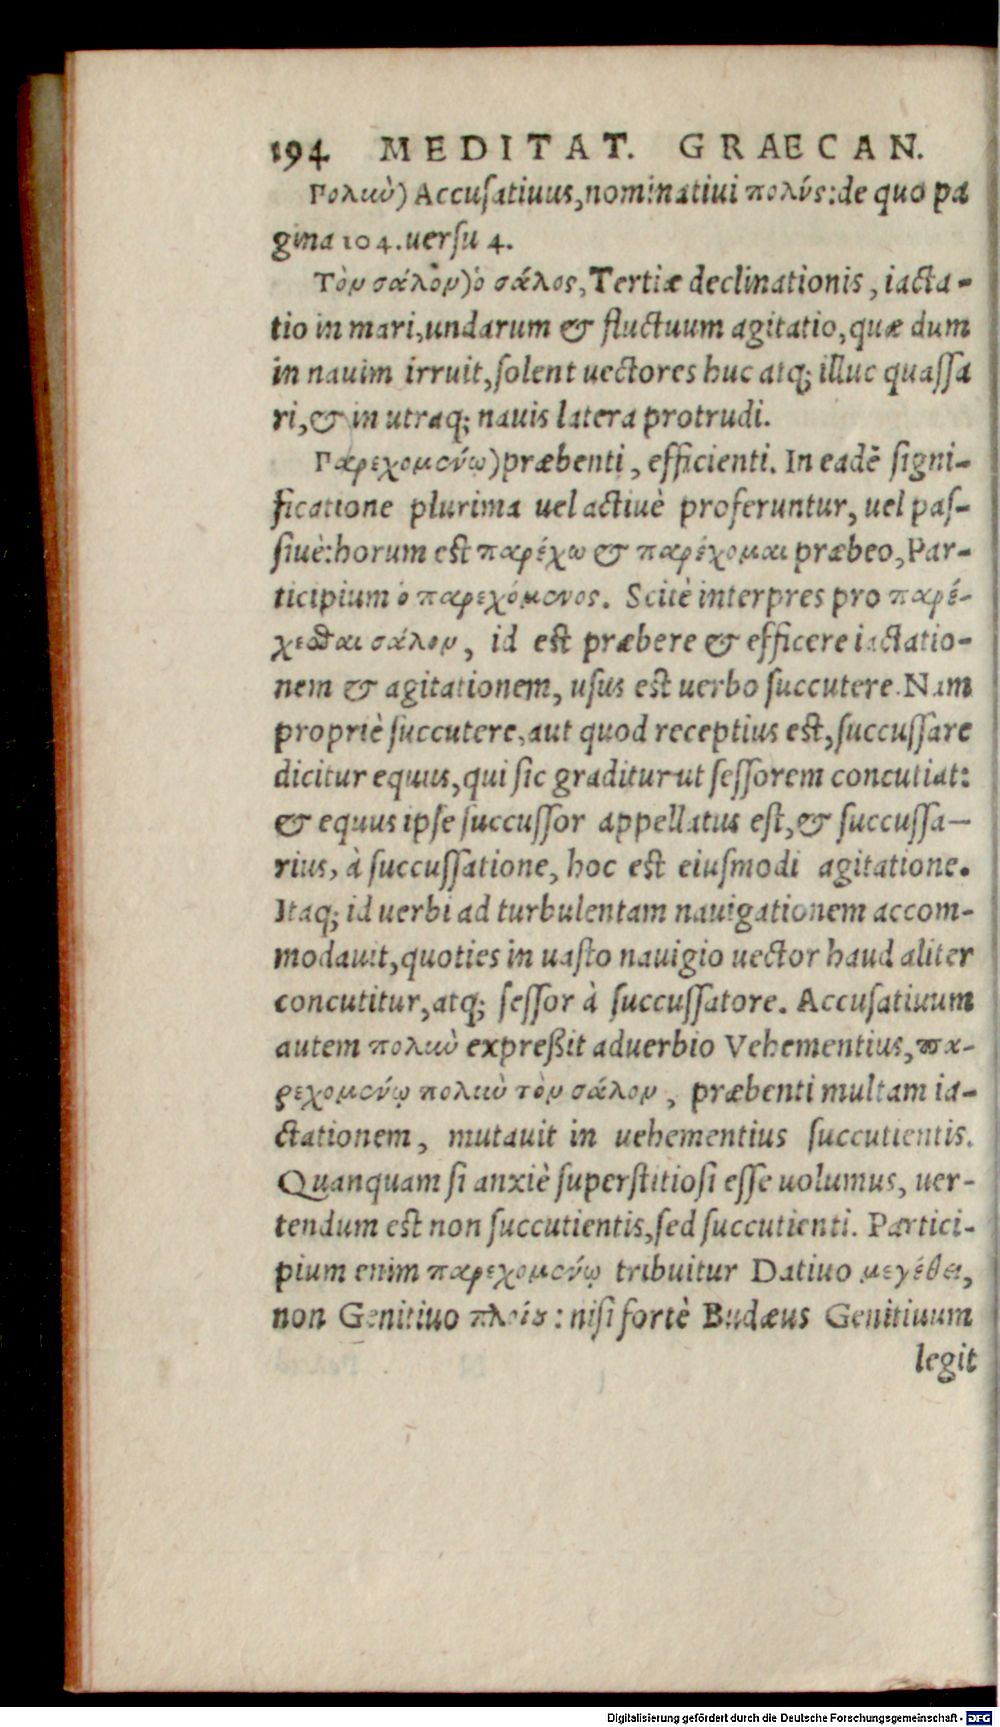 194 MEDITAT. GRAECAN.
Γολιὼ) Accuſatiuus, nominatiui πολύς: de quo pa
gina 104. uerſu 4.
Τὸν σάλον) ὁ σάλος, Tertiæ declinationis, iacta-
tio in mari, undarum & fluctuum agitatio, quæ dum
in nauim irruit, ſolent uectores huc atq; illuc quaſſa
ri, & in utraq; nauis latera protrudi.
Γαρεχομένῳ) præbenti, efficienti. In eadē ſigni-
ficatione plurima uel actiuè proferuntur, uel paſ-
ſiuè: horum eſt παρέχω & παρέχομαι præbeo, Par-
ticipium ὁ παρεχόμενος. Scitè interpres pro παρέ-
χεσθαι σάλον, id eſt præbere & efficere iactatio-
nem & agitationem, uſus eſt uerbo ſuccutere. Nam
propriè ſuccutere, aut quod receptius eſt, ſuccuſſare
dicitur equus, qui ſic graditur ut ſeſſorem concutiat:
& equus ipſe ſuccuſſor appellatus eſt, & ſuccuſſa-
rius, à ſuccuſſatione, hoc eſt eiuſmodi agitatione.
Itaq; id uerbi ad turbulentam nauigationem accom-
modauit, quoties in uaſto nauigio uector haud aliter
concutitur, atq; ſeſſor à ſuccuſſatore. Accuſatiuum
autem πολιὼ expreßit aduerbio Vehementius, πα-
ρεχομένῳ πολιὼ τὸν σάλον, præbenti multam ia-
ctationem, mutauit in uehementius ſuccutientis.
Quanquam ſi anxiè ſuperſtitioſi eſſe uolumus, uer-
tendum eſt non ſuccutientis, ſed ſuccutienti. Partici-
pium enim παρεχομένῳ tribuitur Datiuo μεγέθει,
non Genitiuo πλοίου: niſi fortè Budæus Genitiuum
legit
Digitalisierung gefördert durch die Deutsche Forschungsgemeinschaft - DFG